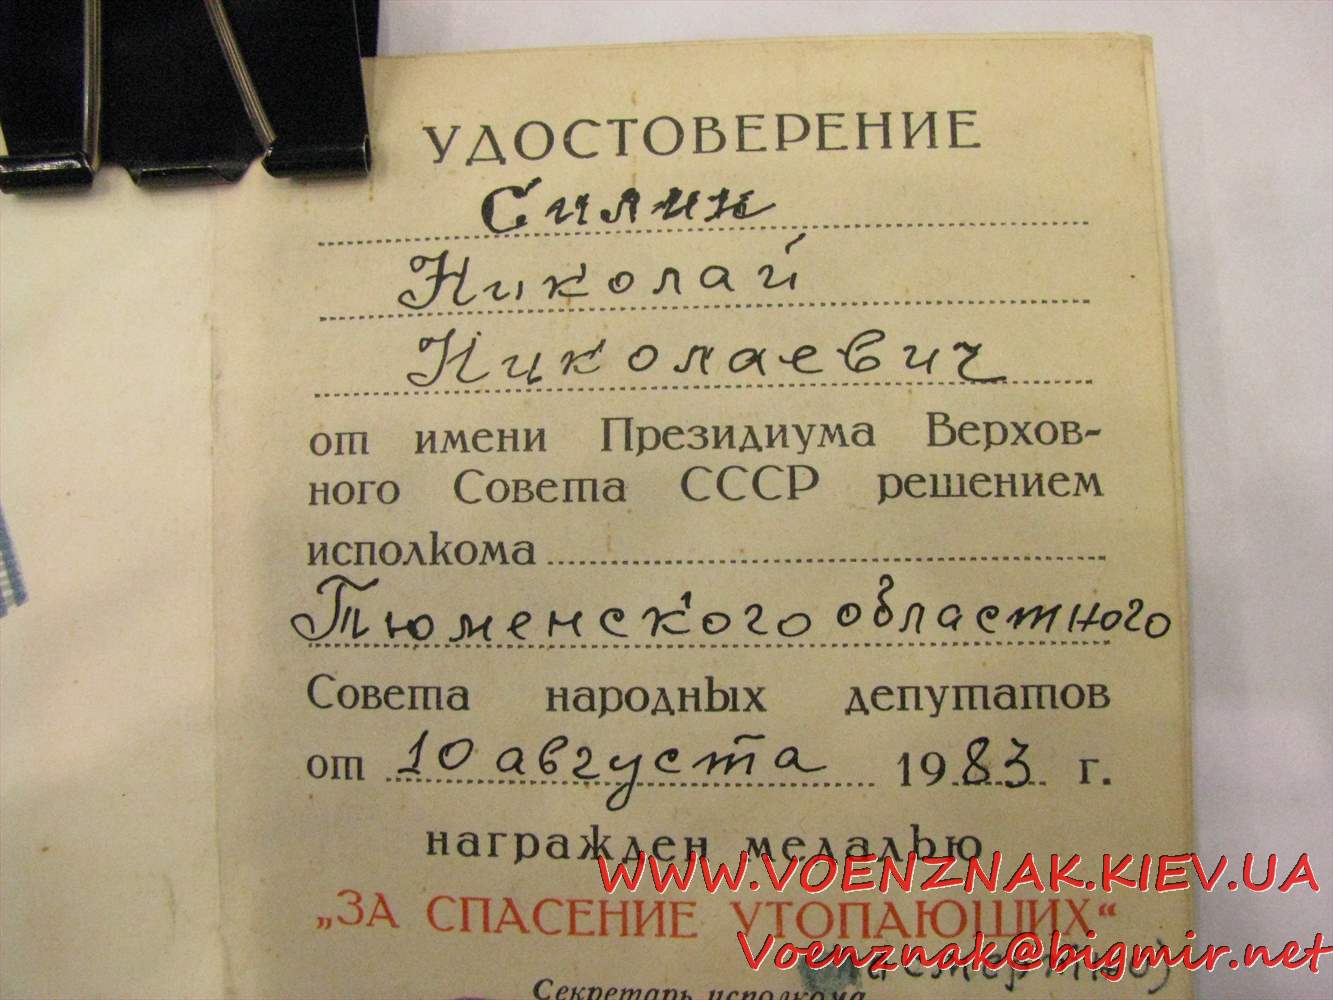 УДОСТОВЕРЕНИЕ
Силин
Николай
Николаевич
от имени Президиума Верхов-
ного Совета СССР решением
исполкома
Тюменского областного
Совета народных депутатов
от 10 августа 1983 г.
награжден медалью
WWW.VOENZNAK.KIEV.UA
„ЗА СПАСЕНИЕ УТОПАЮЩИХ“
Voenznak@bigmir.net
Секретарь исполкома